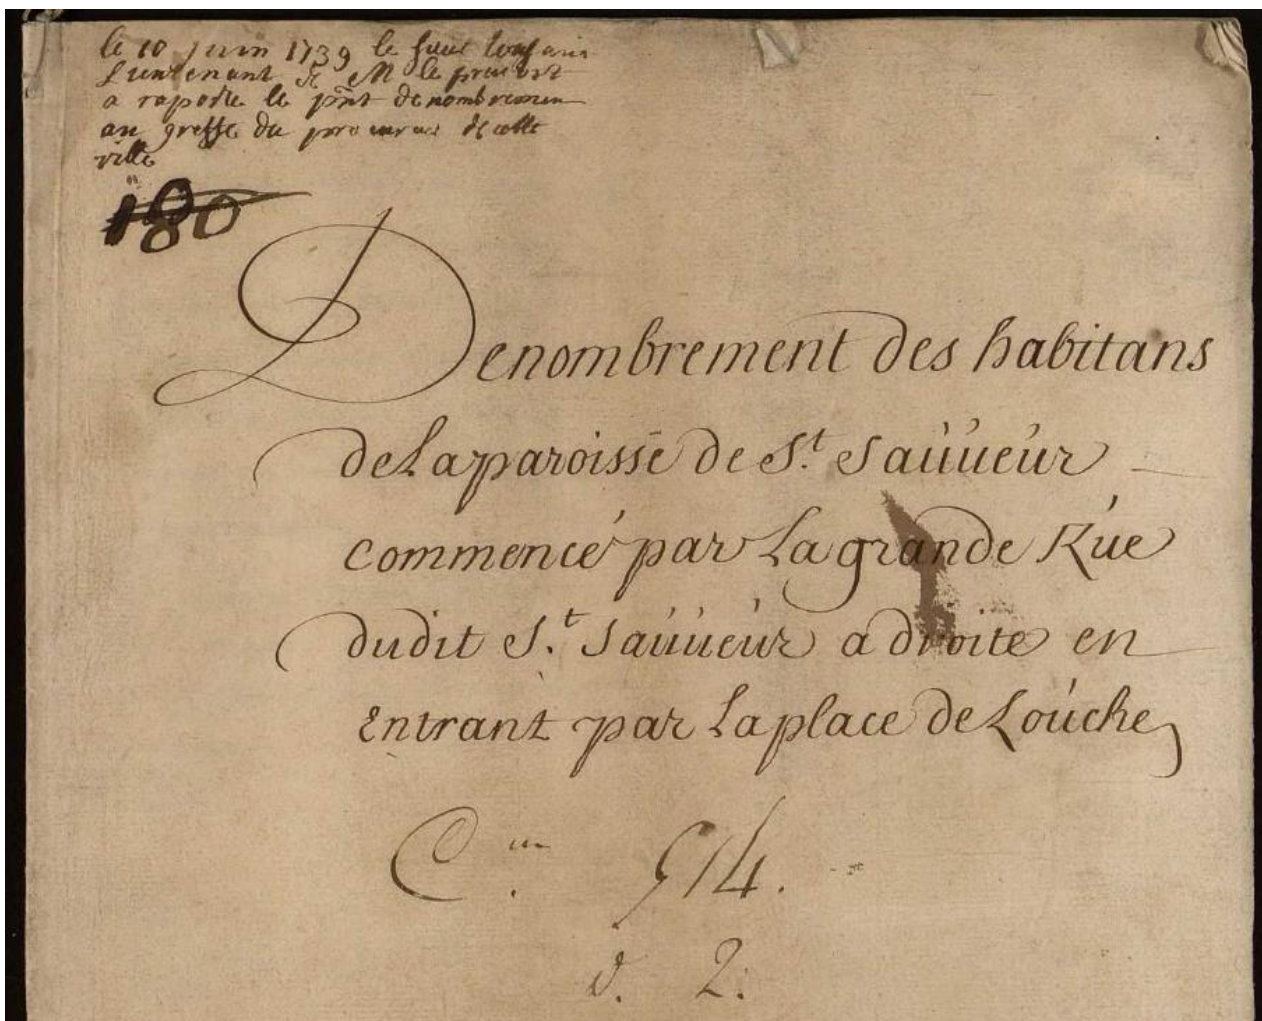 le 10 juin 1739 le sieur
Lieutenant de M le prevost
a raporte le pñt denombremen
au greffe du de cette
ville
180
Denombrement des habitans
de La paroisse de S.t Sauueur
commencé par La grande Rúe
dudit S.t Sauueur a droite en
Entrant par La place de Loúche
C.on 514.
d. 2.